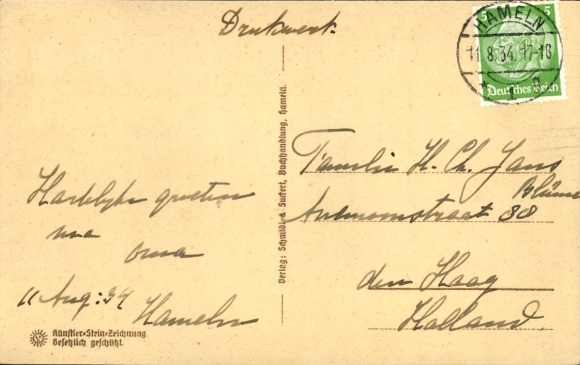 Drukwerk.
5 5
HAMELN
11.8.34.17-18
Deutsches Reich
Hartelyke groeten
oma
11 Aug: 34
Hameln
Familie H. Ch. Jans
straat 88
den Haag
Holland.
Verlag: Schmidt & Suckert, Buchhandlung, Hameln.
Künstler-Stein-Zeichnung
Gesetzlich geschützt.